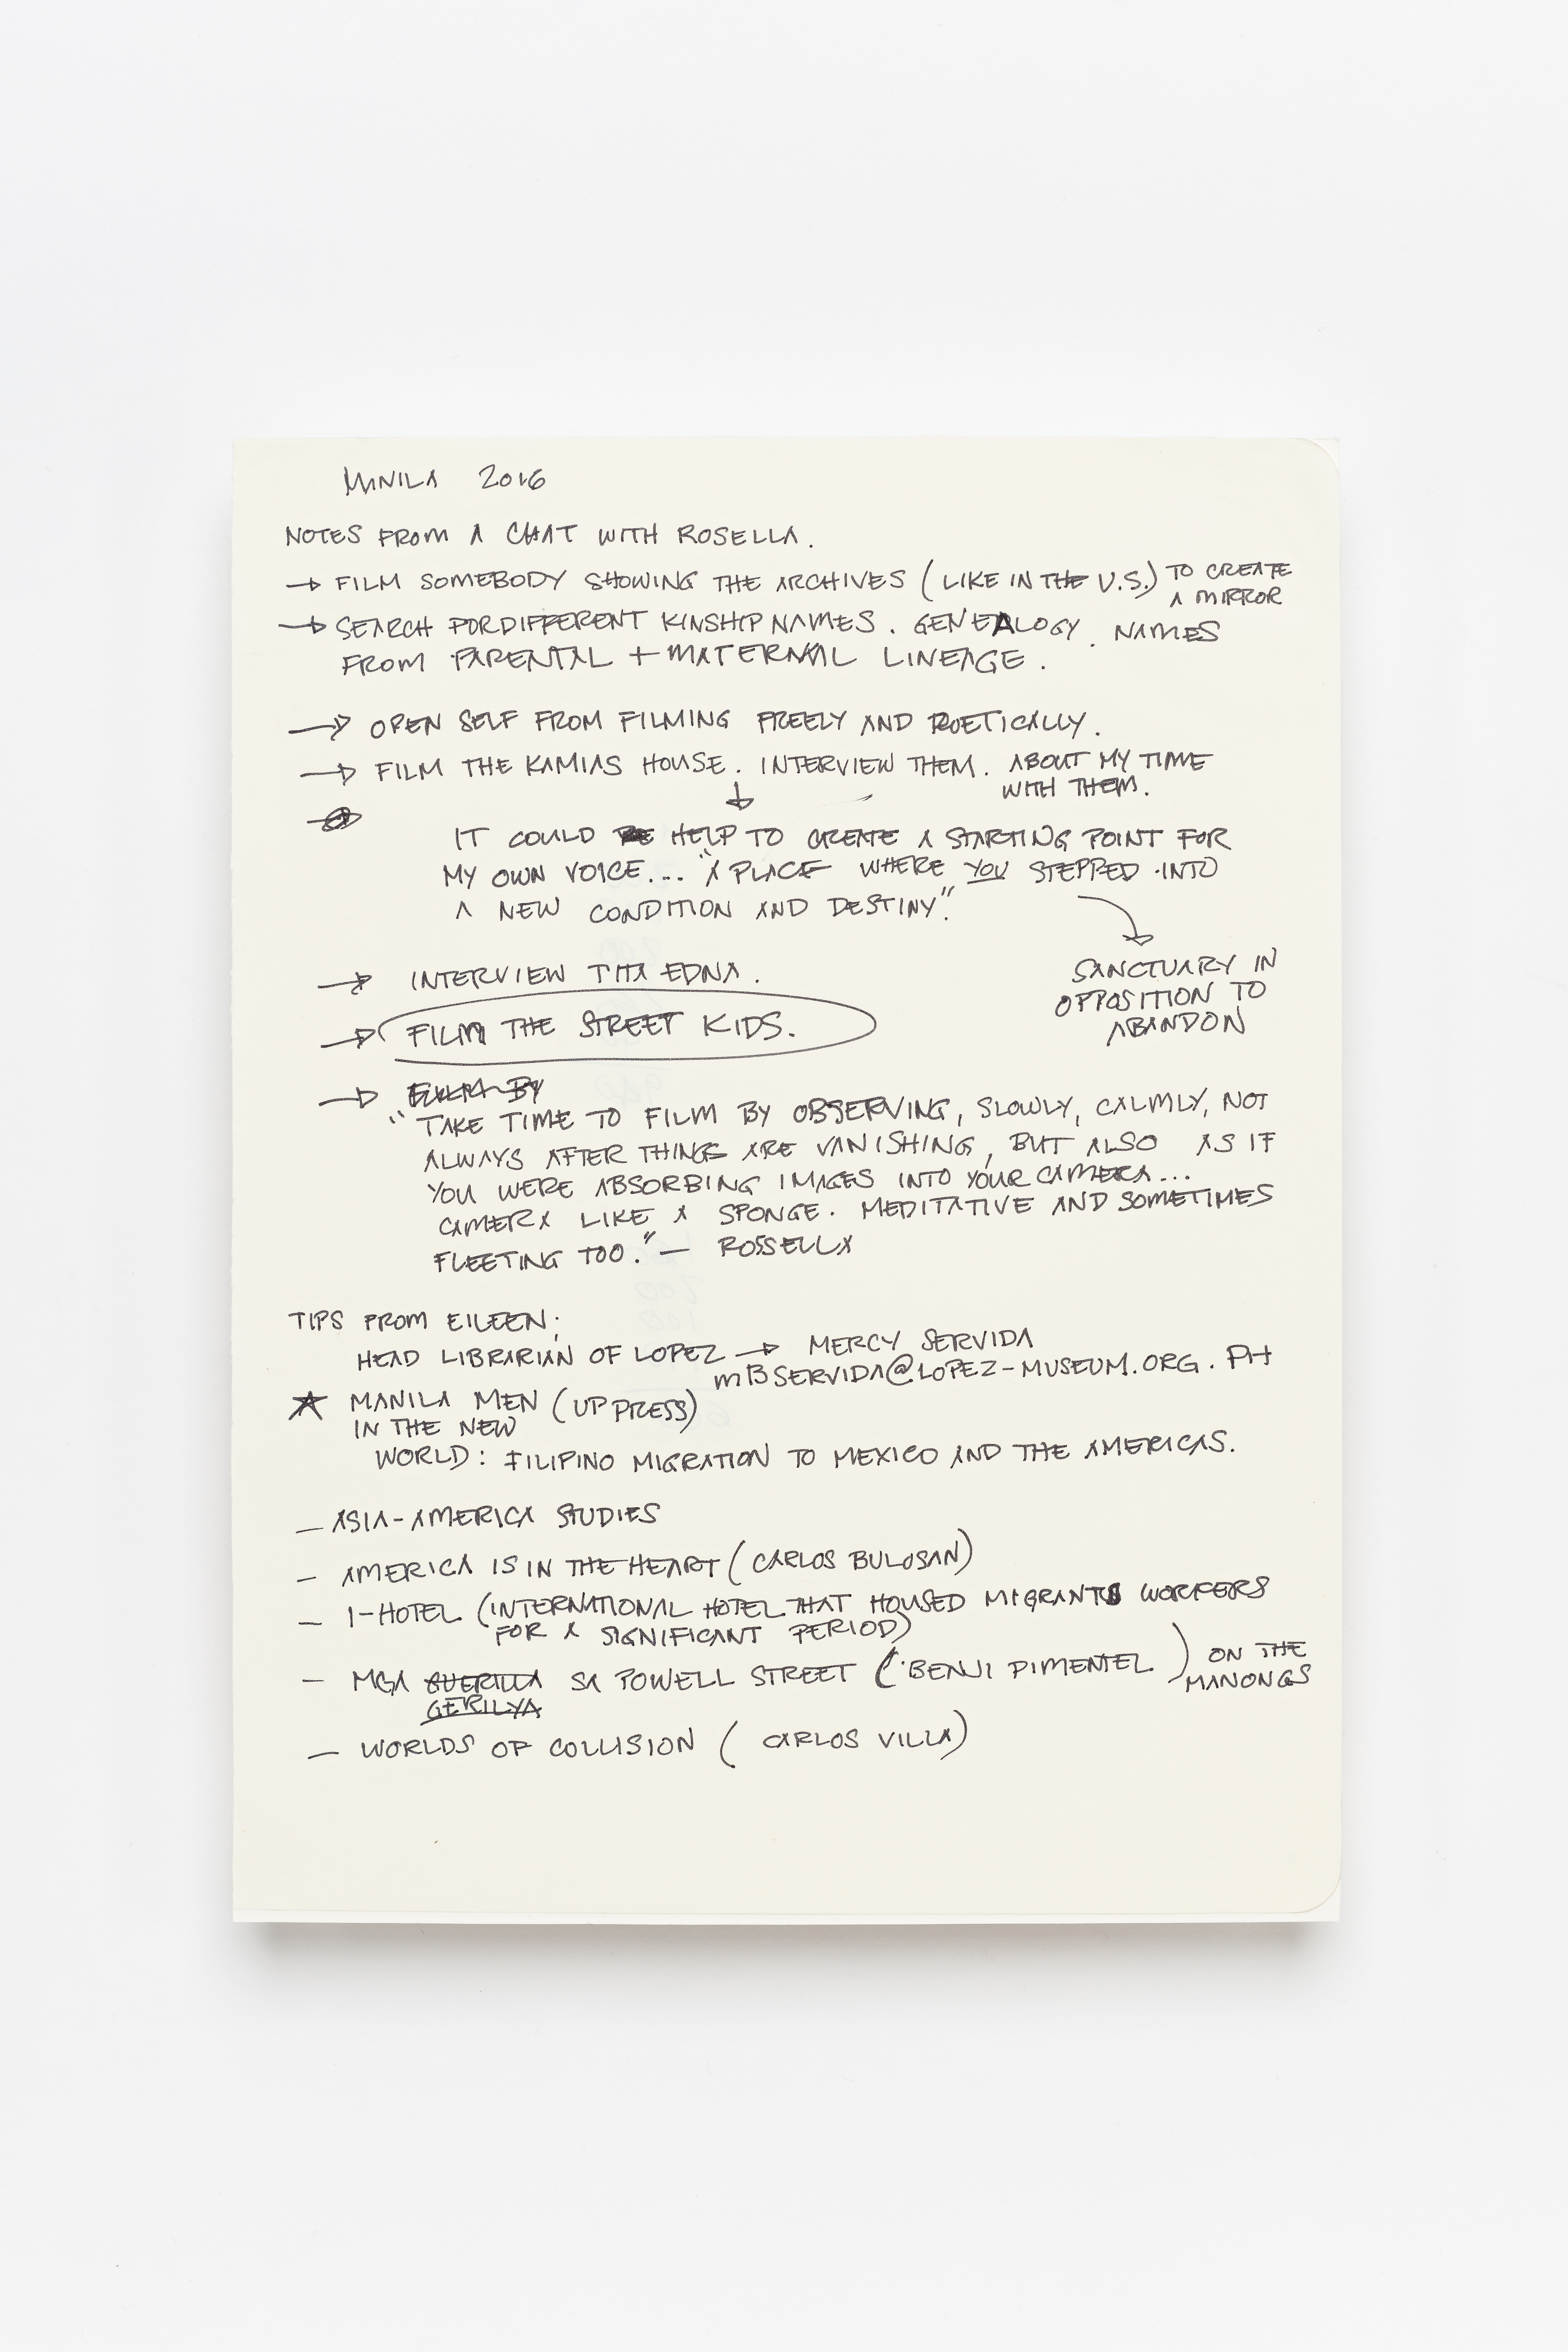 MANILA 2016
NOTES FROM A CHAT WITH ROSELLA.
→ FILM SOMEBODY SHOWING THE ARCHIVES (LIKE IN THE U.S.) TO CREATE
A MIRROR
→ SEARCH FOR DIFFERENT KINSHIP NAMES. GENEALOGY. NAMES
FROM PARENTAL + MATERNAL LINEAGE.
→ OPEN SELF FROM FILMING FREELY AND POETICALLY.
→ FILM THE KAMIAS HOUSE. INTERVIEW THEM. ABOUT MY TIME
WITH THEM.
IT COULD HELP TO CREATE A STARTING POINT FOR
MY OWN VOICE... "A PLACE WHERE YOU STEPPED INTO
A NEW CONDITION AND DESTINY".
SANCTUARY IN
OPPOSITION TO
ABANDON
→ INTERVIEW TITA EDNA.
→ FILM THE STREET KIDS.
→ BY
"TAKE TIME TO FILM BY OBSERVING, SLOWLY, CALMLY, NOT
ALWAYS AFTER THINGS ARE VANISHING, BUT ALSO AS IF
YOU WERE ABSORBING IMAGES INTO YOUR CAMERA...
CAMERA LIKE A SPONGE. MEDITATIVE AND SOMETIMES
FLEETING TOO." — ROSSELLA
TIPS FROM EILEEN:
HEAD LIBRARIAN OF LOPEZ → MERCY SERVIDA
mBSERVIDA@LOPEZ-MUSEUM.ORG.PH
★ MANILA MEN (UP PRESS)
IN THE NEW
WORLD: FILIPINO MIGRATION TO MEXICO AND THE AMERICAS.
— ASIA-AMERICA STUDIES
— AMERICA IS IN THE HEART (CARLOS BULOSAN)
— I-HOTEL (INTERNATIONAL HOTEL THAT HOUSED MIGRANTS WORKERS
FOR A SIGNIFICANT PERIOD)
— MGA GUERILLA SA POWELL STREET (BENJI PIMENTEL) ON THE
MANONGS
GERILYA
— WORLDS OF COLLISION (CARLOS VILLA)